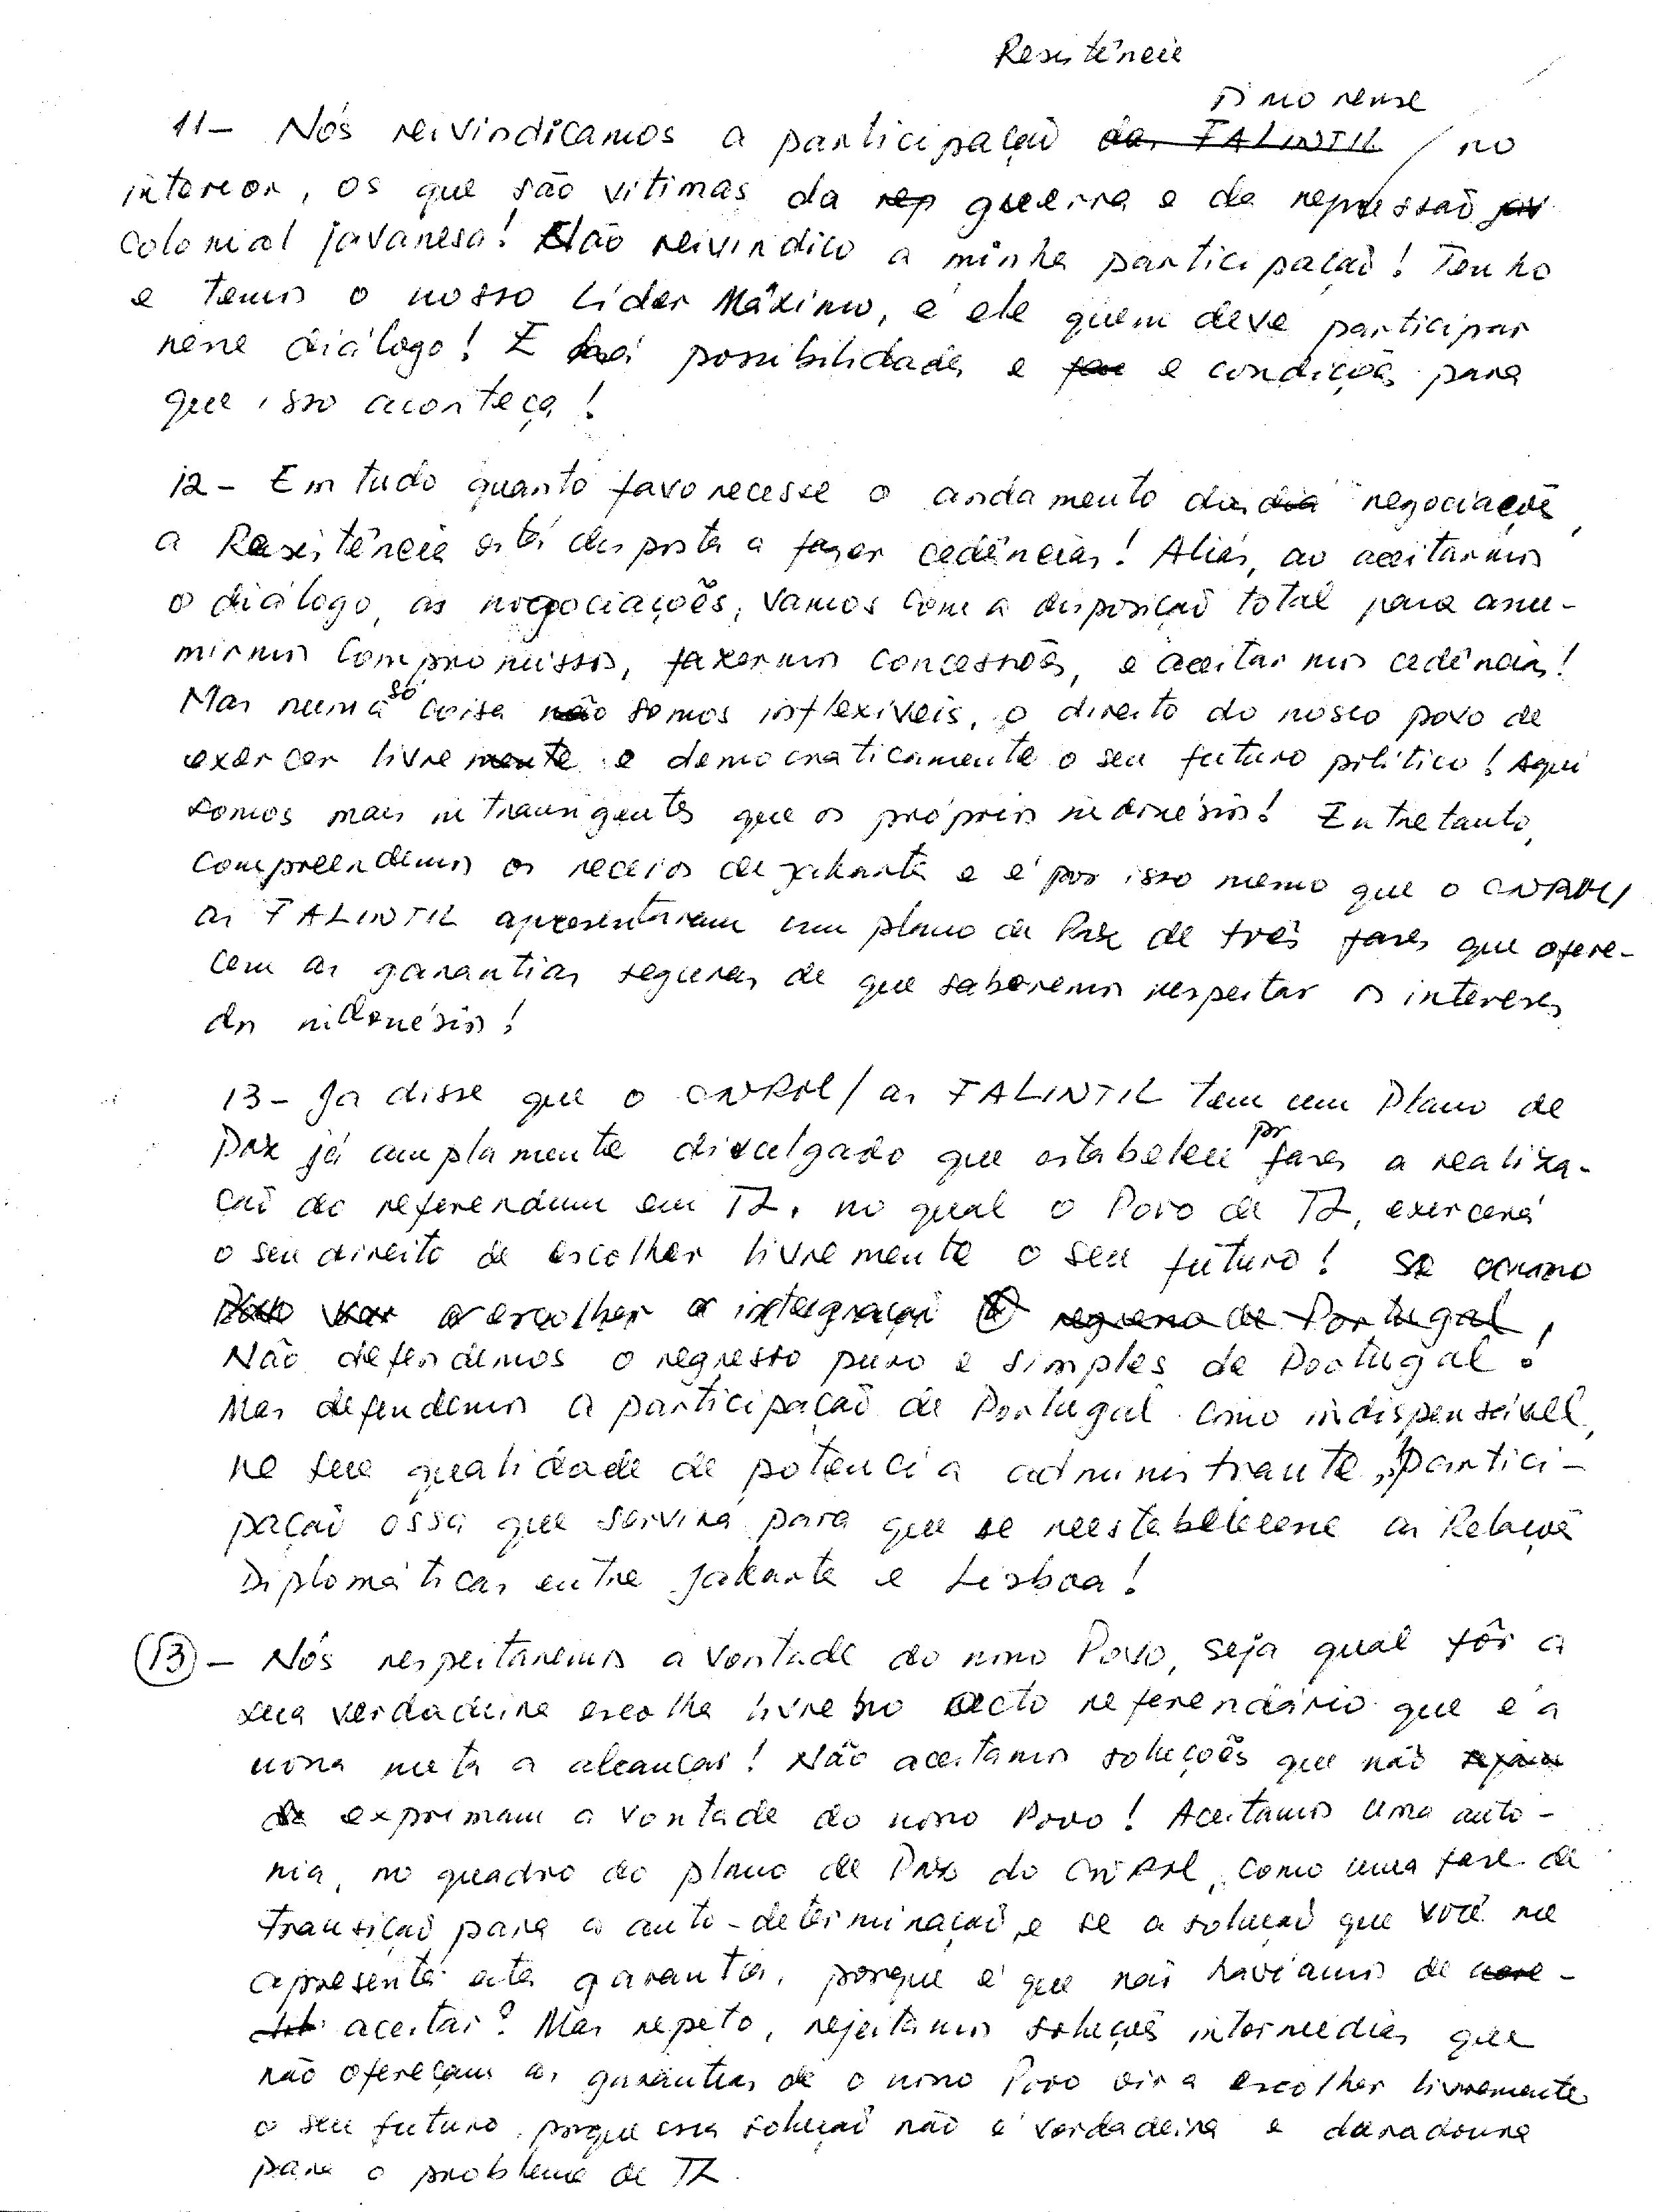 Resistência
Timorense
11- Nós reivindicamos a participação das FALINTIL / no
interior, os que são vítimas da rep guerra e da repressão jav
colonial javanesa! Não reivindico a minha participação! Tenho
e temos o nosso Líder Máximo, é ele quem deve participar
nesse diálogo! E há possibilidades e e condições para
que isso aconteça!
12- Em tudo quanto favorecesse o andamento das dia negociações,
a Resistência está disposta a fazer cedências! Aliás, ao aceitarmos
o diálogo, as negociações, vamos com a disposição total para assu-
mirmos compromissos, fazermos concessões, e aceitarmos cedências!
Mas numa só coisa não somos inflexíveis, o direito do nosso povo de
exercer livremente e democraticamente o seu futuro político! Aqui
somos mais intransigentes que os próprios indonésios! Entretanto,
compreendemos os receios de Jakarta e é por isso mesmo que o CNRM/
as FALINTIL apresentaram um plano de Paz de três fases que ofere-
cem as garantias seguras de que saberemos respeitar os interesses
dos indonésios!
13- Já disse que o CNRM/as FALINTIL tem um Plano de
Paz já amplamente divulgado que estabelece por fases a realiza-
ção do referendum em TL, no qual o Povo de TL, exercerá
o seu direito de escolher livremente o seu futuro! Se o nosso
Povo escolher a integração regresso de Portugal,
Não defendemos o regresso puro e simples de Portugal!
Mas defendemos a participação de Portugal como indispensável,
na sua qualidade de potência administrante, partici-
pação essa que servirá para que se reestabelecesse as Relações
Diplomáticas entre Jakarta e Lisboa!
(13)- Nós respeitaremos a vontade do nosso Povo, seja qual fôr a
sua verdadeira escolha livre no acto referendário que é a
nossa meta a alcançar! Não aceitamos soluções que não sejam
de exprimam a vontade do nosso Povo! Aceitamos uma auto-
nia, no quadro do plano de Paz do CNRM, como uma fase de
transição para a auto-determinação e se a solução que você me
apresenta esta garantia, porque é que não havíamos de
aceitar? Mas repeto, rejeitamos soluções intermédias que
não ofereçam as garantias de o nosso Povo vir a escolher livremente
o seu futuro, porque essa solução não é verdadeira e duradoura
para o problema de TL.